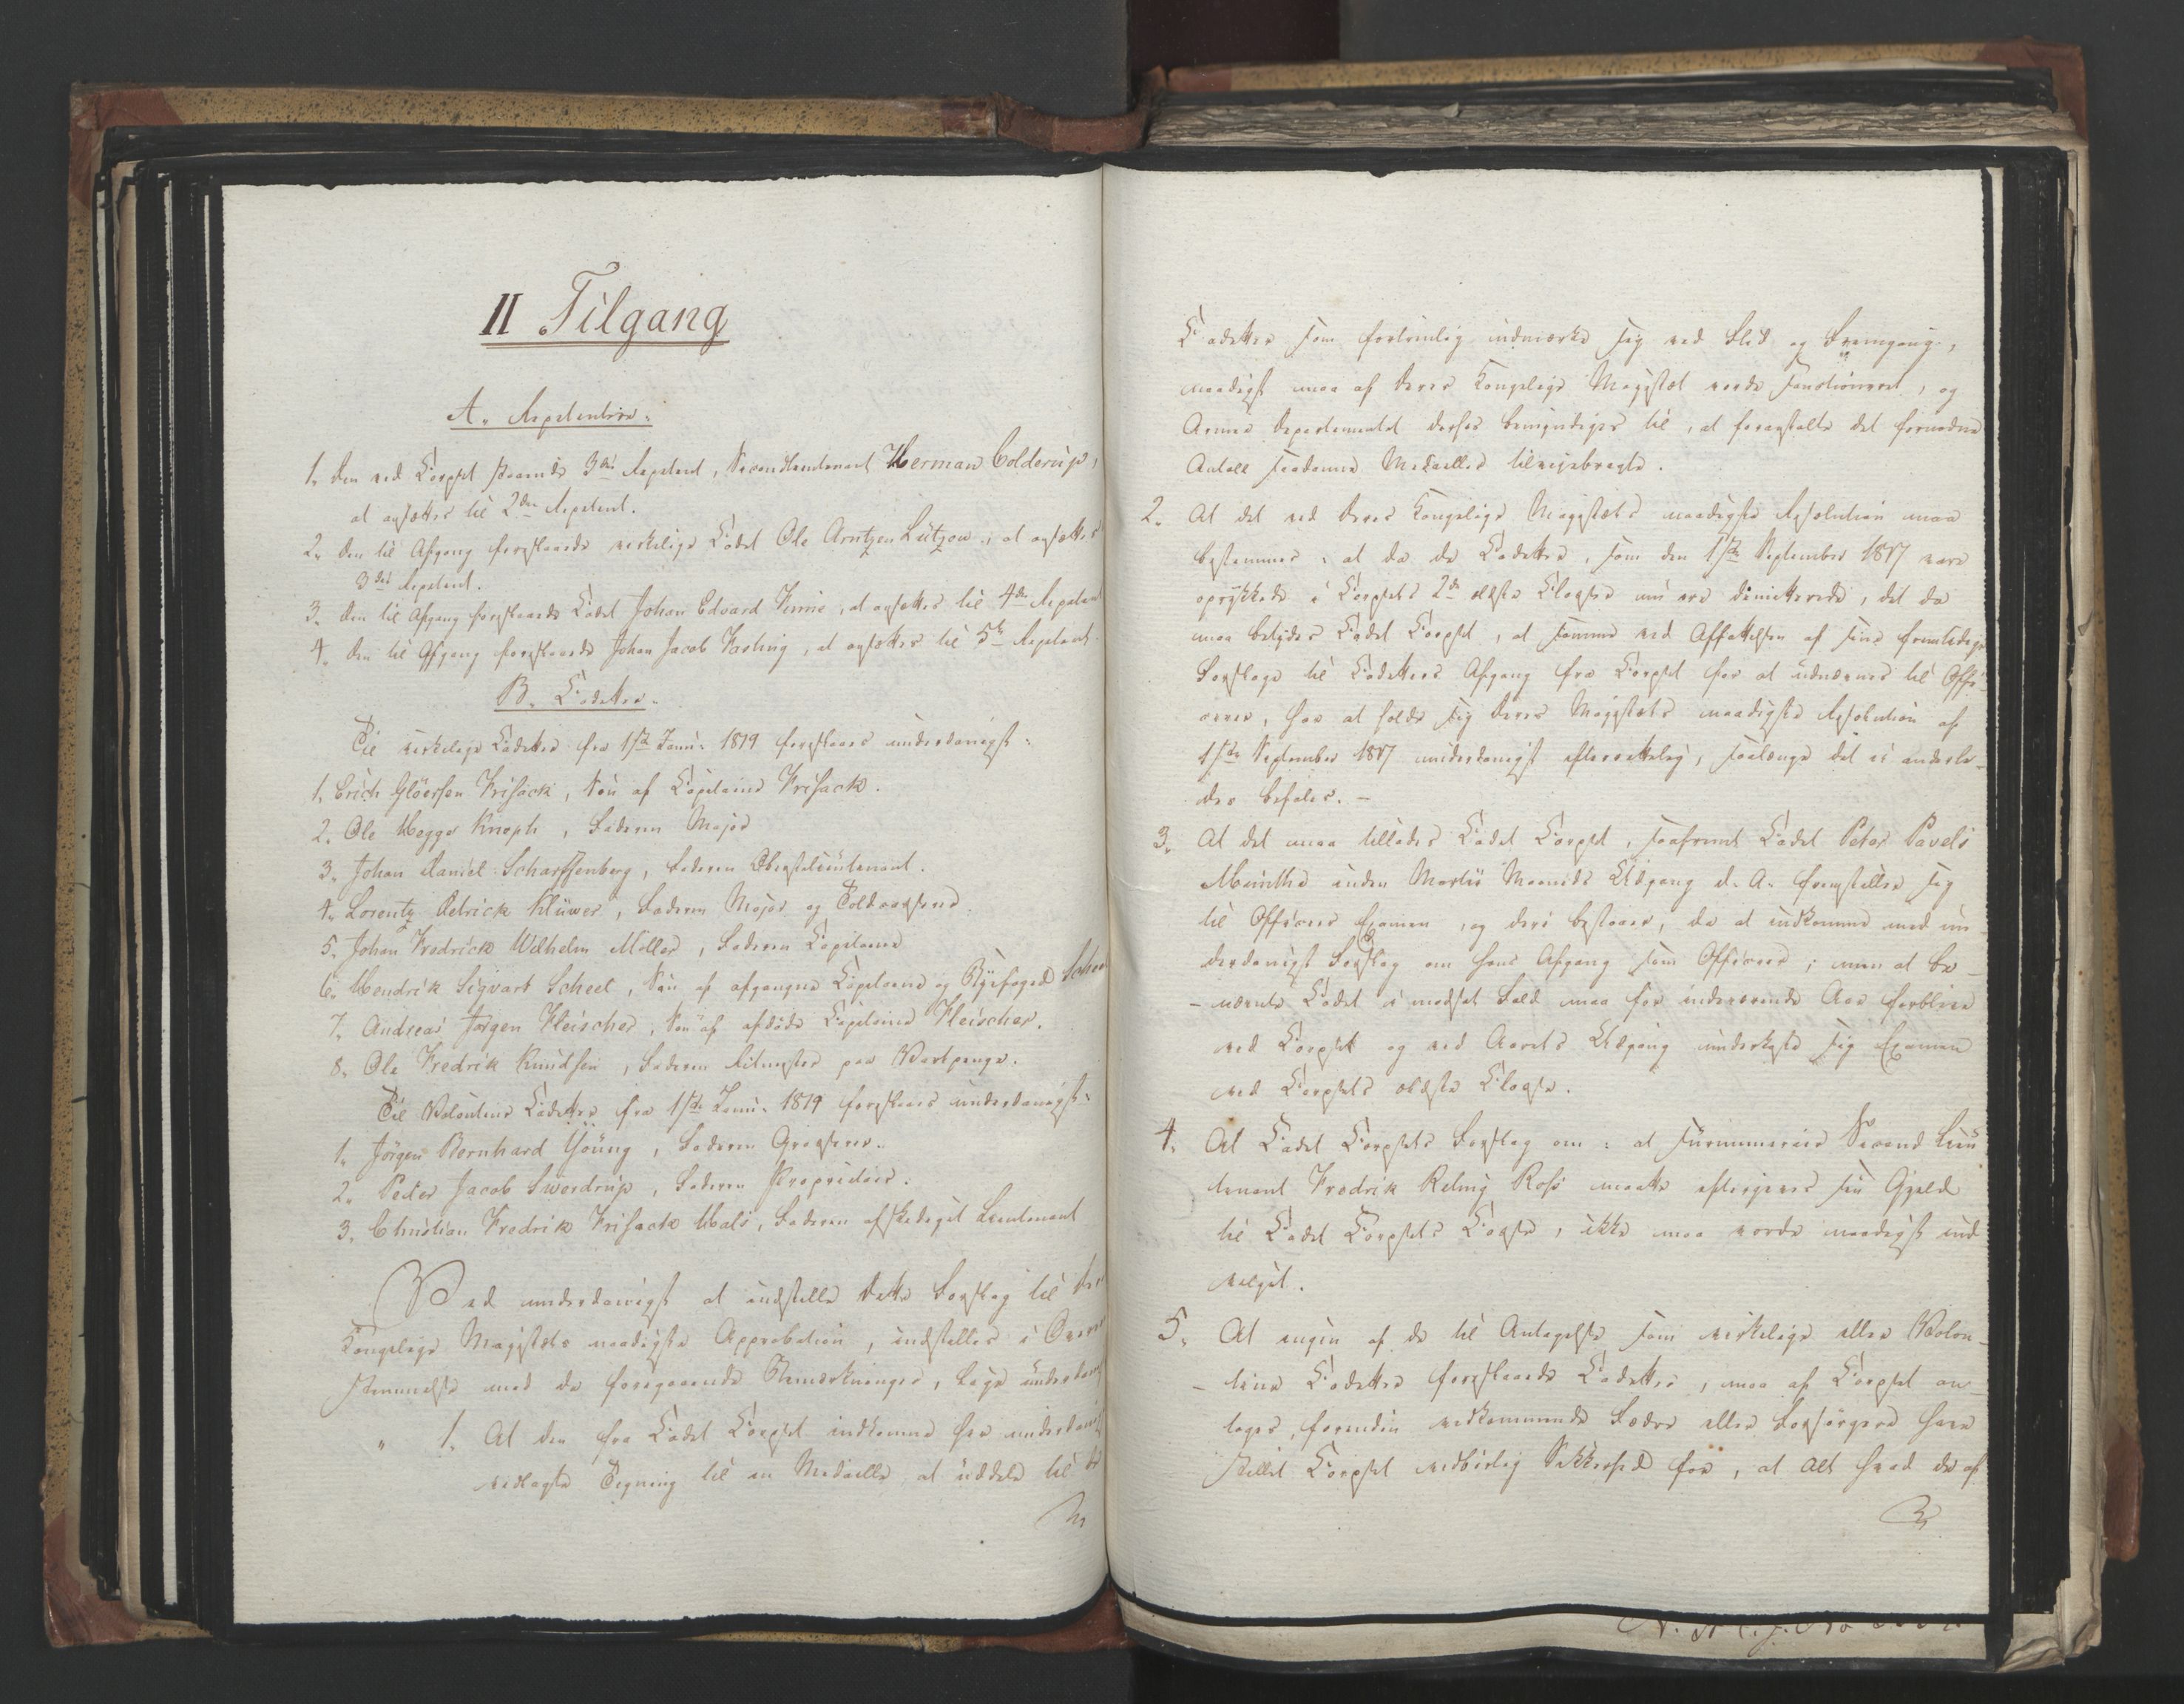 II Tilgang
A. Repetentere.
1. Den ved Corpset staaende 3die Repetent, Secondlieutenant Herman Colderup,
at ansættes til 2den Repetent.
2. Den til Afgang foreslaaede virkelige Cadet Ole Arntzen Lützow, at ansættes
3die Repetent.
3. Den til Afgang foreslaaede Cadet Johan Edvard Finne, at ansættes til 4de Repetent
4. Den til Afgang foreslaaede Johan Jacob Fasting, at ansættes til 5te Repetent.
B. Cadetter.
Til virkelige Cadetter fra 1ste Janu: 1819 foreslaaes underdanigst:
1. Erich Glöersen Frisack, Søn af Capitaine Frisack.
2. Ole Hegge Knoph, Faderen Major
3. Johan Daniel Scharffenberg, Faderen Oberstlieutenant.
4. Lorentz Didrick Klüwer, Faderen Major og Toldkasserer.
5. Johan Fredrick Wilhelm Møller, Faderen Capitaine
6. Hendrik Sigvart Scheel, Søn af afgangne Capitaine og Byefoged Scheel
7. Andreas Jørgen Fleischer, Søn af afdøde Capitaine Fleischer.
8. Ole Fredrik Knudsen, Faderen Ritmester paa Vartpenge.
Til Volontaire Cadetter fra 1ste Janu: 1819 foreslaaes underdanigst:
1. Jørgen Bernhard Yöung, Faderen Grosserer.
2. Peder Jacob Swerdrup, Faderen Proprietair.
3. Christian Fredrik Frisack Hals, Faderen afskediget Lieutenant
Ved underdanigst at indstille dette Forslag til Deres
Kongelige Majestæts naadigste Approbation, indstilles i Overeens-
stemmelse med de foregaaende Bemærkninger, ligesaa underdanigst
1. At den fra Cadet Corpset indkomne her underdanigst
vedlagte Tegning til en Medaille at uddele til de
Cadetter som fortrinlig udmærke sig ved Flid og Fremgang,
naadigst maa af Deres Kongelige Majestæt vorde sanctioneret, og
Armee Departementet derhos bemyndiges til, at foranstalte det fornødne
Antall saadanne Medailler tilveiebragte.
2. At det ved Deres Kongelige Majestæts naadigste Resolution maa
bestemmes: at da de Cadetter, som den 1ste September 1817 vare
oprykkede i Corpsets 2de ældste Classer nu ere dimitterede, det da
maa betydes Cadet Corpset, at samme ved Affattelsen af sine fremtidige
Forslage til Cadetters Afgang fra Corpset for at udnævnes til Offi-
cerer, har at holde sig Deres Majestæts naadigste Resolution af
1ste September 1817 underdanigst efterrettelig, saalænge det ei anderle-
des befales. -
3. At det maa tillades Cadet Corpset, saafremt Cadet Peter Pavels
Munthe inden Martii Maaneds Udgang d. A. fremstiller sig
til Officeers Examen, og deri bestaaer, da at indkomme med un-
derdanigst Forslag om hans Afgang som Officeer; men at be-
nævnte Cadet i modsat Fald maa for indeværende Aar forblive
ved Corpset og ved Aarets Udgang underkaste sig Examen
ved Corpsets ældste Classe.
4. At Cadet Corpsets Forslag om: at surnumerair Second Lieu-
tenant Fredrik Relling Ross maatte eftergives sin Gjæld
til Cadet Corpsets Casse, ikke maa vorde naadigst ind
vilget.
5. At ingen af de til Antagelse som virkelige eller Volon-
taire Cadetter foreslaaede Cadetter, maa af Corpset an-
tages, forinden vedkommende Fædre eller Forsørgere have
stillet Corpset vedbørlig Sikkerhed for, at alt hvad de af